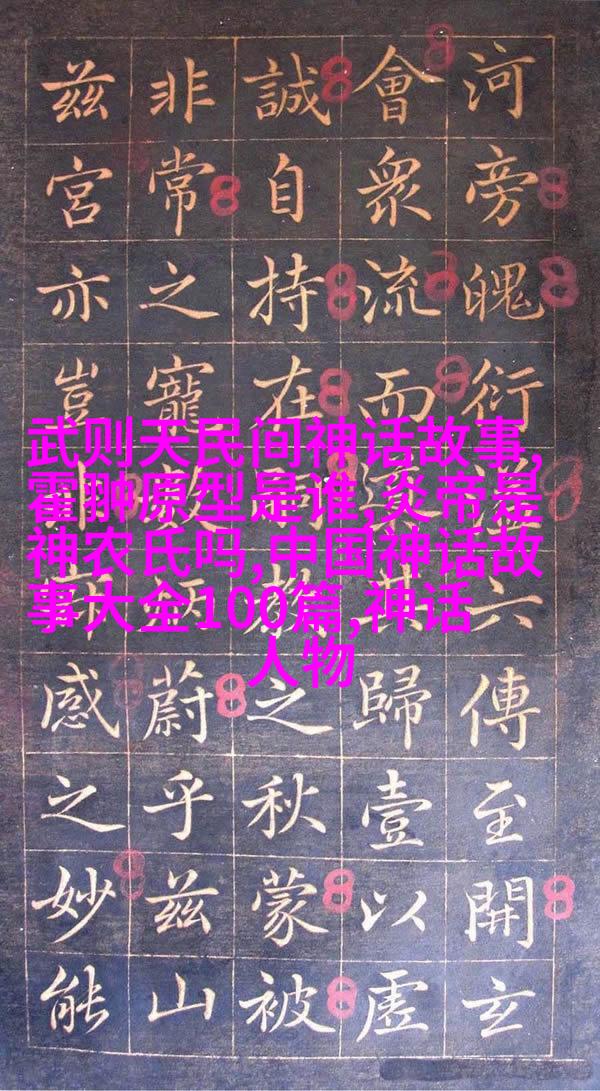 河旁魄衍六傳至開玄
會眾流而深其歸壹以虛
誠自持在同教之秋蒙被
非常之寵敢蔚乎茲山
茲宮亦豈感之妙能
武则天民间神话故事,
霍翀原型是谁,炎帝是
神农氏吗,中国神话故
事大全100篇,神话
人物